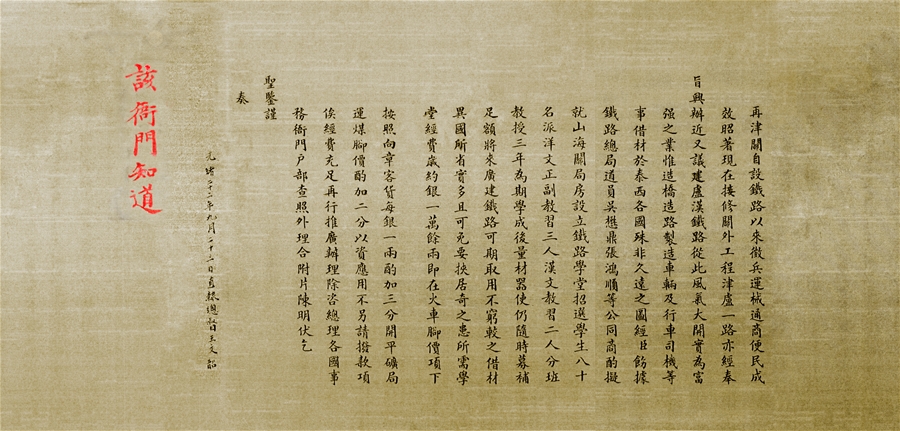 再津關自設鐵路以來徵兵運械通商便民成
效昭著現在接修關外工程津盧一路亦經奉
旨興辦近又議建盧漢鐵路從此風氣大開實為富
强之業惟造橋造路製造車輛及行車司機等
事借材於泰西各國殊非久遠之圖經臣飭據
鐵路總局道員吳懋鼎張鴻順等公同商酌擬
就山海關局房設立鐵路學堂招選學生八十
名派洋文正副教習三人漢文教習二人分班
教授三年為期學成後量材器使仍隨時募補
足額將來廣建鐵路可期取用不窮較之借材
異國所省實多且可免要挾居奇之患所需學
堂經費歲約銀一萬餘兩即在火車腳價項下
按照向章客貨每銀一兩酌加三分開平礦局
運煤腳價酌加二分以資應用不另請撥款項
俟經費充足再行推廣辦理除咨總理各國事
務衙門戶部查照外理合附片陳明伏乞
聖鑒謹
奏
光緒二十二年九月二十三日直隸總督王文韶
該衙門知道